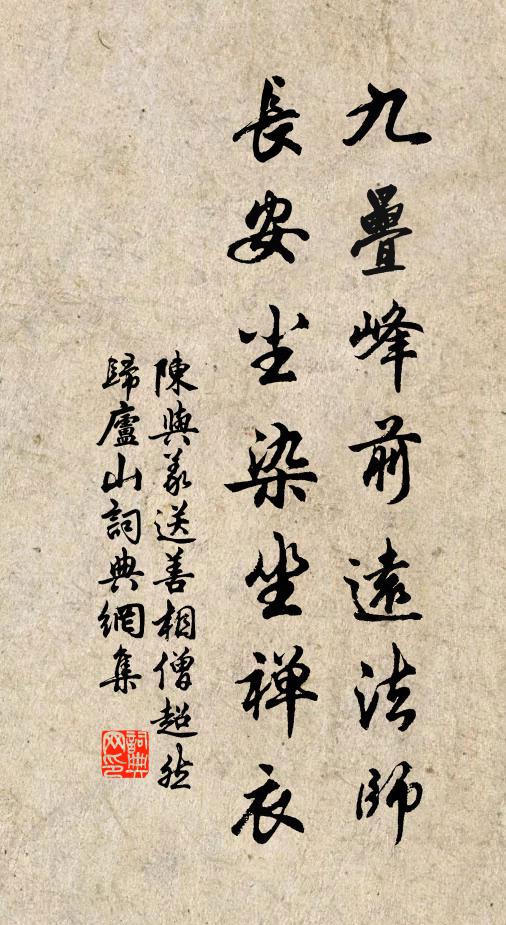 九疊峰前遠法師
長安尘染坐禅衣
陳與義送善相僧超然
歸廬山詞典網集
詞典网印